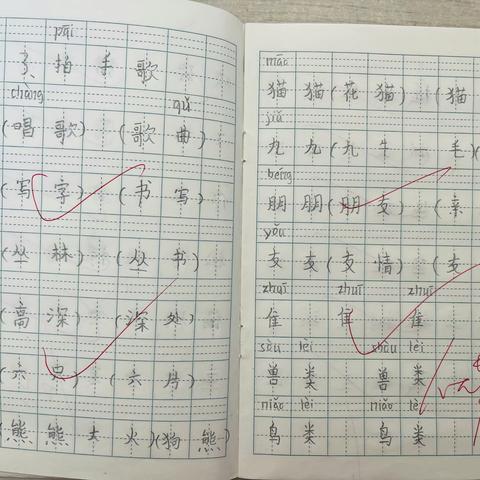 pāi
拍 手 歌
chàng qǔ
(唱 歌) (歌 曲)
(写 字) (书 写)
(丛 林) (丛 书)
(高 深) (深 处)
(六 户) (六 月)
(熊 熊 大 火)(狗 熊)
māo
猫 猫 (花 猫) (猫
jiǔ
九 九 (九 牛 一 毛)
péng
朋 朋 (朋 友) (亲
yǒu
友 友 (友 情) (友
zhuī zhuī zhuī
隹 隹 隹
shòu lèi shòu lèi
兽 类 兽 类
niǎo lèi niǎo lè
鸟 类 鸟 类